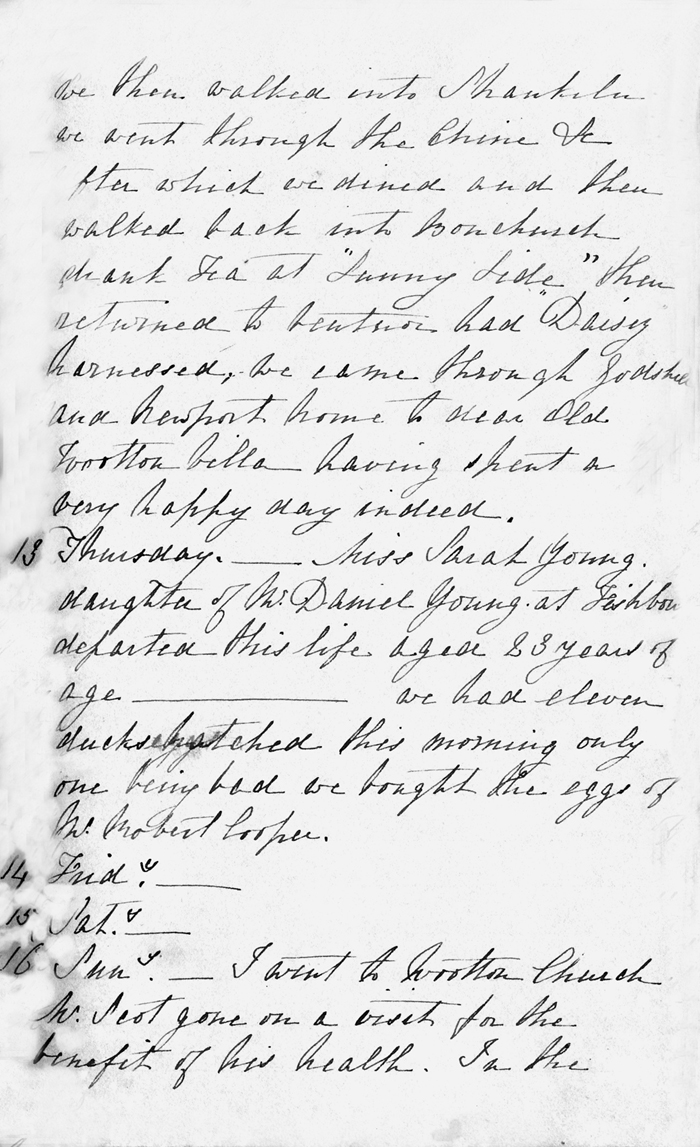 we then walked into Shanklin
we went through the Chine &c
fter which we dined and then
walked back into Bonchurch
drank Tea at "Sunny Side" then
returned to Ventnor had "Daisy
harnessed, we came through Godshil
and Newport home to dear Old
Wootton Villa having spent a
very happy day indeed.
13 Thursday. — Miss Sarah Young.
daughter of Mr. Daniel Young. at Fishbou
departed this life aged 23 years of
age — we had eleven
ducks hatched this morning only
one being bad we bought the eggs of
Mr. Robert Cooper.
14 Fridy. —
15 Saty. —
16 Suny. — I went to Wootton Church
Mr. Scot gone on a visit for the
benefit of his health. In the